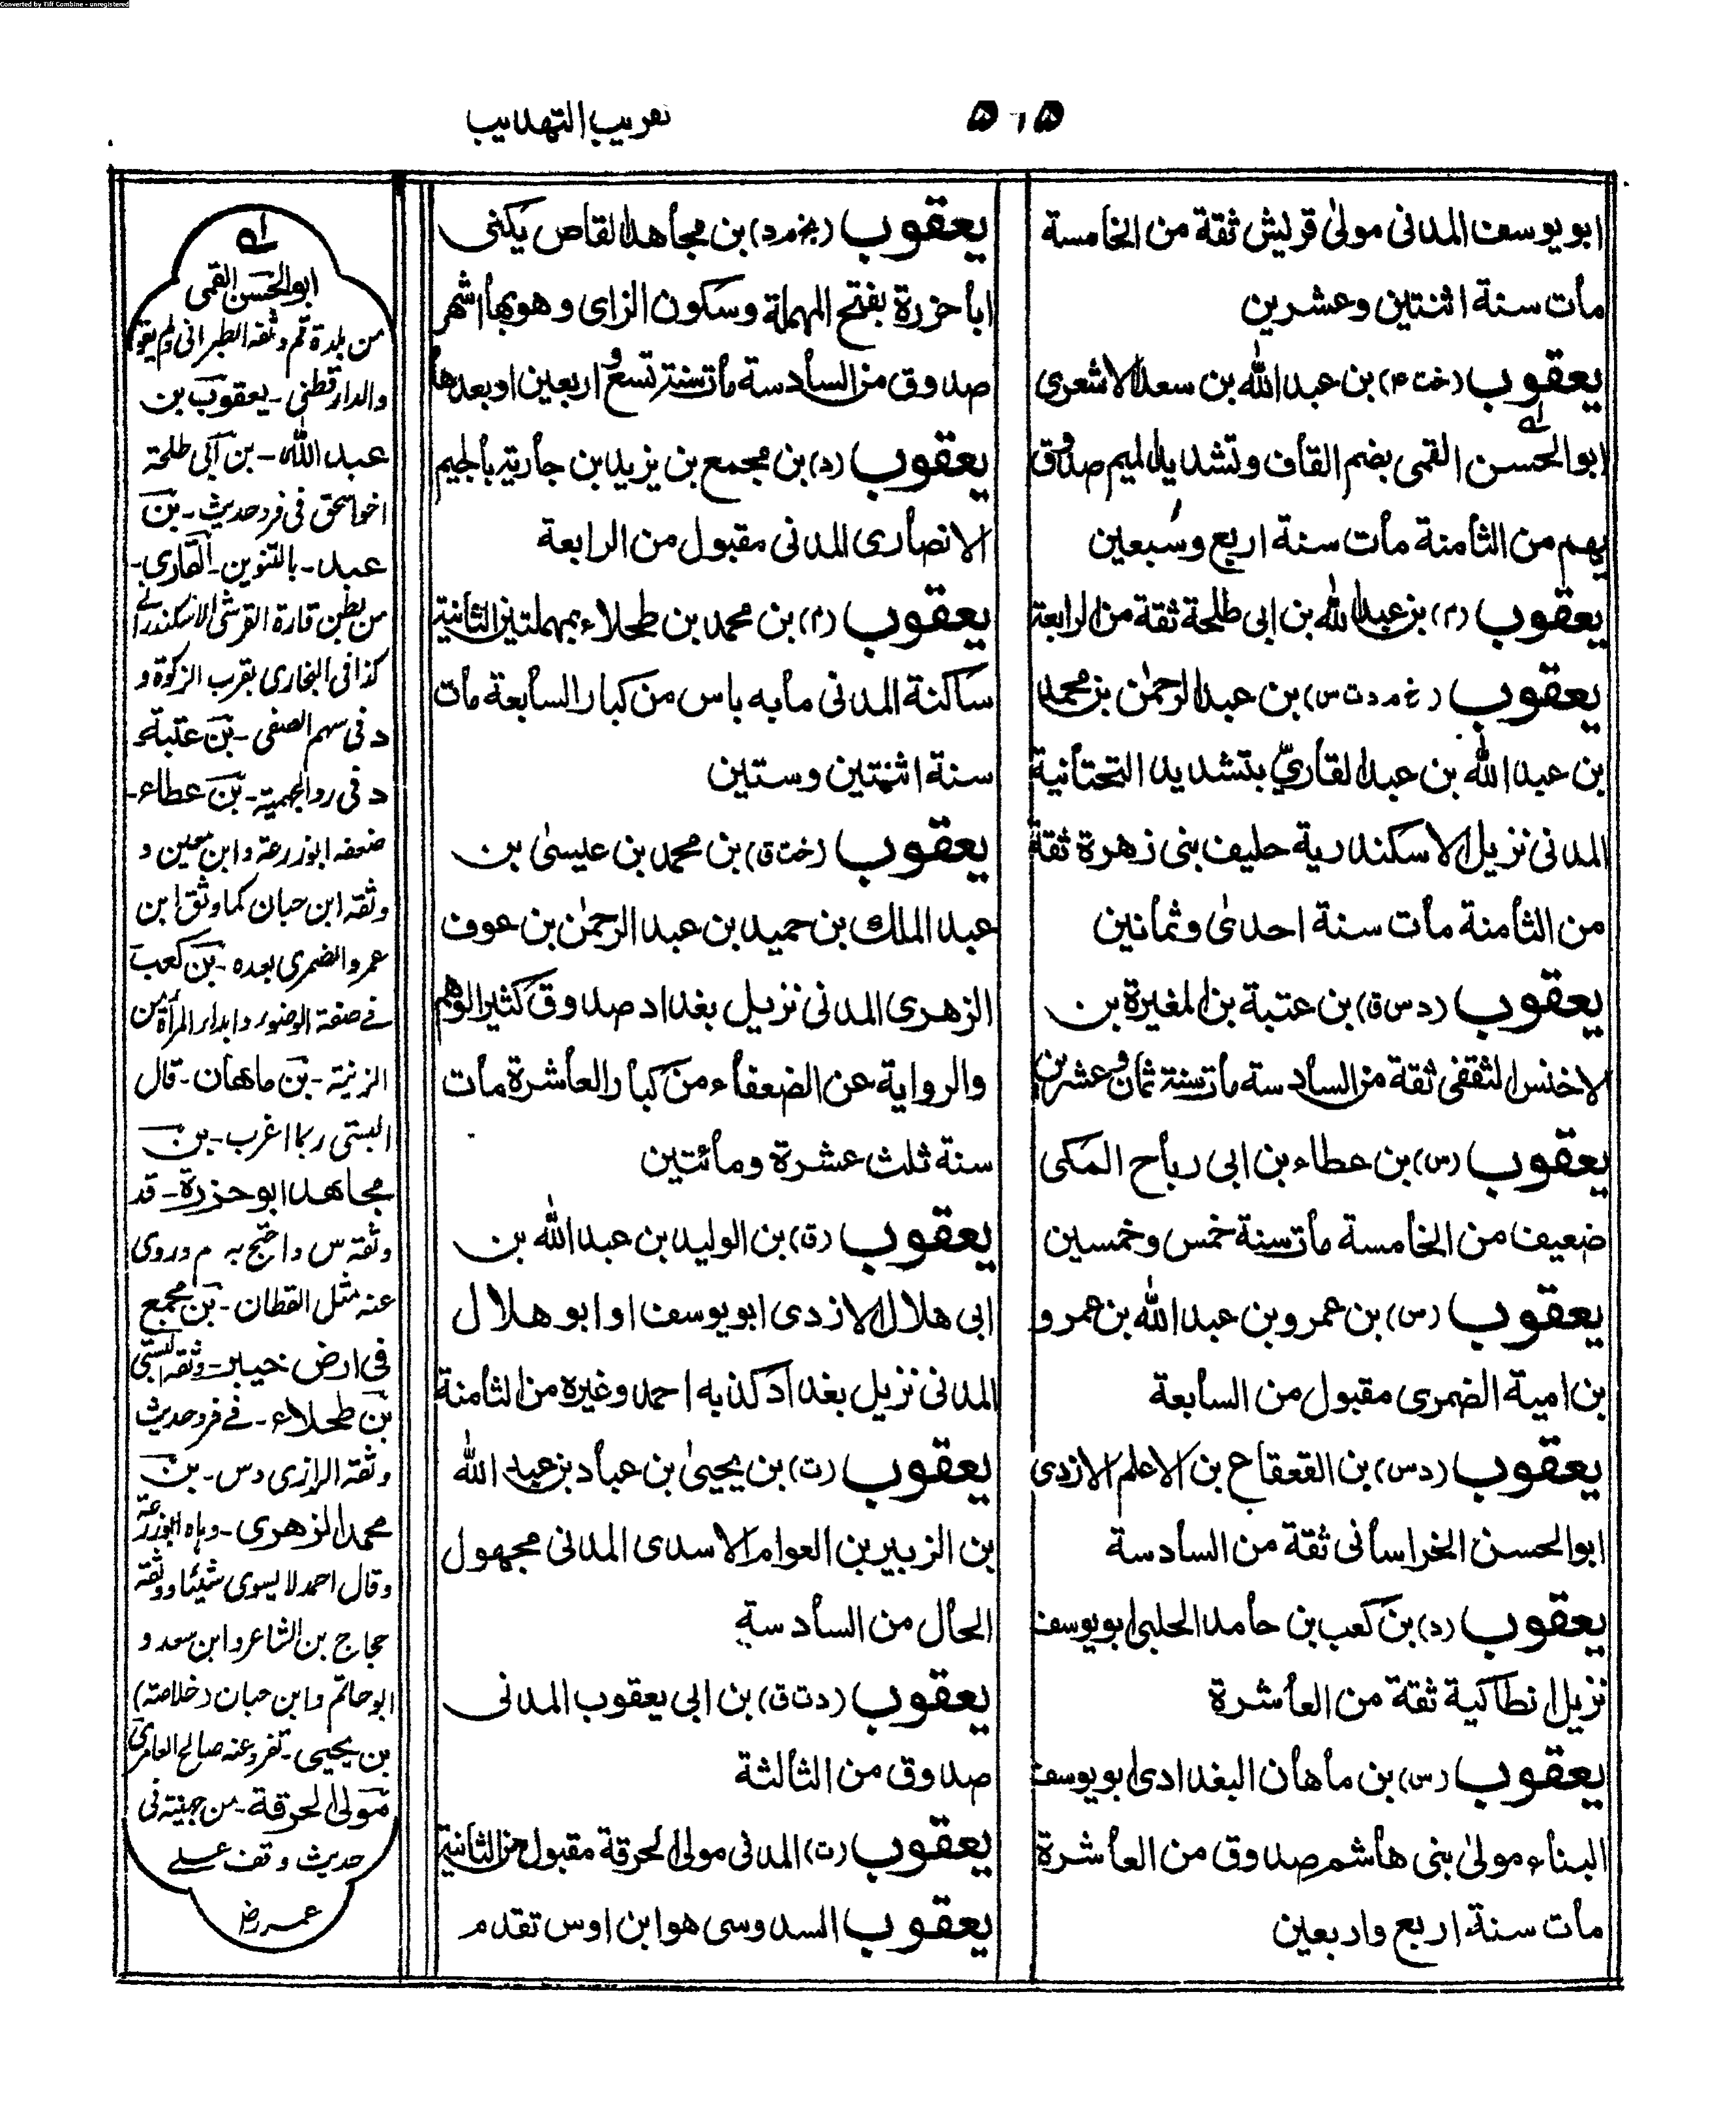 Converted by Tiff Combine - unregistered
تقريب التهذيب
ابو يوسف المدنى مولىٰ قريش ثقة من الخامسة
مات سنة اثنتين وعشرين
يعقوب (خت ۴) بن عبد الله بن سعد الاشعرى
ابو الحسن القمى بضم القاف وتشديد الميم صدوق
يهم من الثامنة مات سنة اربع وسبعين
يعقوب (م) بن عبد الله بن ابى طلحة ثقة من الرابعة
يعقوب (خ م د ت س) بن عبد الرحمٰن بن محمد
بن عبد الله بن عبد القارىّ بتشديد التحتانية
المدنى نزيل الاسكندرية حليف بنى زهرة ثقة
من الثامنة مات سنة احدىٰ وثمانين
يعقوب (د س ق) بن عتبة بن المغيرة بن
الاخنس الثقفى ثقة من السادسة مات سنة ثمان وعشرين
يعقوب (س) بن عطاء بن ابى رباح المكى
ضعيف من الخامسة مات سنة خمس وخمسين
يعقوب (س) بن عمرو بن عبد الله بن عمرو
بن امية الضمرى مقبول من السابعة
يعقوب (د س) بن القعقاع بن الاعلم الازدى
ابو الحسن الخراسانى ثقة من السادسة
يعقوب (د) بن كعب بن حامد الحلبى ابو يوسف
نزيل انطاكية ثقة من العاشرة
يعقوب (س) بن ماهان البغدادى ابو يوسف
البناء مولىٰ بنى هاشم صدوق من العاشرة
مات سنة اربع واربعين
يعقوب (بخ م د) بن مجاهد القاص يكنى
ابا حزرة بفتح المهملة وسكون الزاى وهو بها اشهر
صدوق من السادسة مات سنة تسع واربعين او بعدها
يعقوب (د) بن مجمع بن يزيد بن جارية بالجيم
الانصارى المدنى مقبول من الرابعة
يعقوب (م) بن محمد بن طحلاء بمهملتين الثانية
ساكنة المدنى ما به باس من كبار السابعة مات
سنة اثنتين وستين
يعقوب (خت ق) بن محمد بن عيسىٰ بن
عبد الملك بن حميد بن عبد الرحمٰن بن عوف
الزهرى المدنى نزيل بغداد صدوق كثير الوهم
والرواية عن الضعفاء من كبار العاشرة مات
سنة ثلث عشرة ومائتين
يعقوب (ق) بن الوليد بن عبد الله بن
ابى هلال الازدى ابو يوسف او ابو هلال
المدنى نزيل بغداد كذبه احمد وغيره من الثامنة
يعقوب (ت) بن يحيىٰ بن عباد بن عبد الله
بن الزبير بن العوام الاسدى المدنى مجهول
الحال من السادسة
يعقوب (د ت ق) بن ابى يعقوب المدنى
صدوق من الثالثة
يعقوب (ت) المدنى مولى الحرقة مقبول من الثانية
يعقوب السدوسى هو ابن اوس تقدم
ابو الحسن القمى
من بلدة قم وثقه الطبرانى ولم يقو
والدارقطنى - يعقوب بن
عبد الله - بن ابى طلحة
اخو اسحق فى فرد حديث - بن
عبد - بالتنوين - القارى -
من بطن قارة القرشى الاسكندرانى
كذا فى البخارى بقرب الزكوة و
د فى سهم الصفى - بن عتبة -
د فى رد الجهمية - بن عطاء -
ضعفه ابو زرعة وابن معين و
وثقه ابن حبان كما وثق ابن
عمرو الضمرى بعده - بن كعب
فى صفة الوضوء وابداء المرأة من
الزينة - بن ماهان - قال
البستى ربما اغرب - بن
مجاهد ابو حزرة - قد
وثقه س واحتج به م وروى
عنه مثل القطان - بن مجمع
فى ارض خيبر - وثقه البستى
بن طحلاء - فى فرد حديث
وثقه الرازى وس - بن
محمد الزهرى - وهاه ابو زرعة
وقال احمد لا يسوى شيئا ووثقه
حجاج بن الشاعر وابن سعد و
ابو حاتم وابن حبان (خلاصة)
بن يحيى - تفرد عنه صالح العامرى
مولى الحرقة - من جهينة فى
حديث وقف على
عمر رض